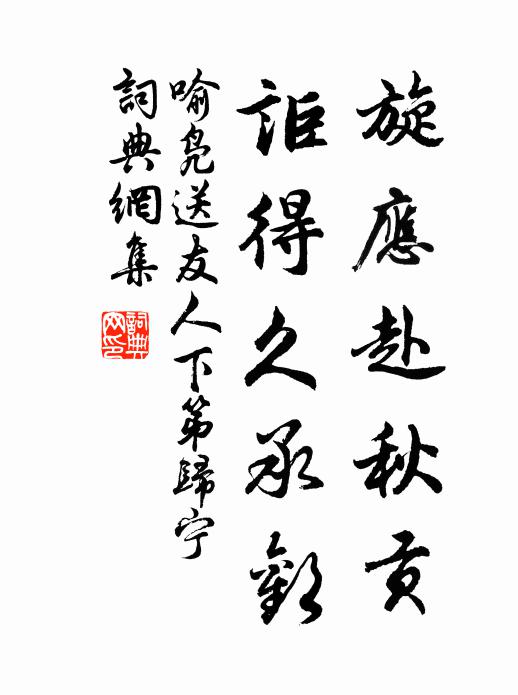 旋應赴秋貢
詎得久承歡
喻凫送友人下第歸宁
詞典網集
詞典
网印